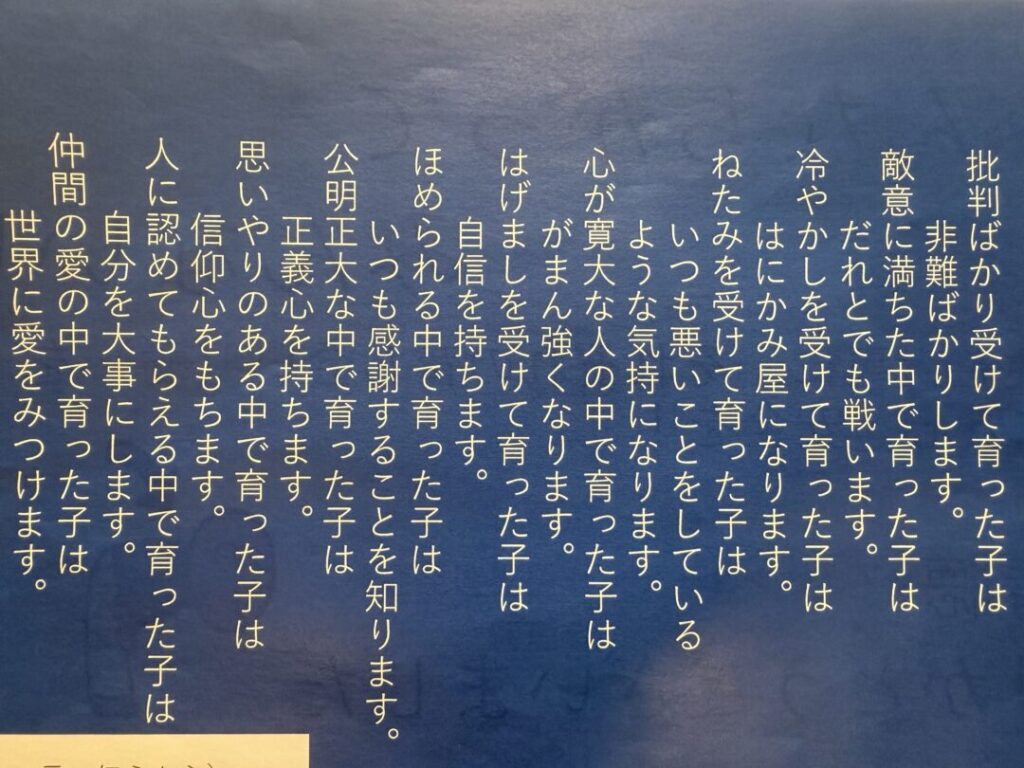 批判ばかり受けて育った子は
非難ばかりします。
敵意に満ちた中で育った子は
だれとでも戦います。
冷やかしを受けて育った子は
はにかみ屋になります。
ねたみを受けて育った子は
いつも悪いことをしている
ような気持になります。
心が寛大な人の中で育った子は
がまん強くなります。
はげましを受けて育った子は
自信を持ちます。
ほめられる中で育った子は
いつも感謝することを知ります。
公明正大な中で育った子は
正義心を持ちます。
思いやりのある中で育った子は
信仰心をもちます。
人に認めてもらえる中で育った子は
自分を大事にします。
仲間の愛の中で育った子は
世界に愛をみつけます。